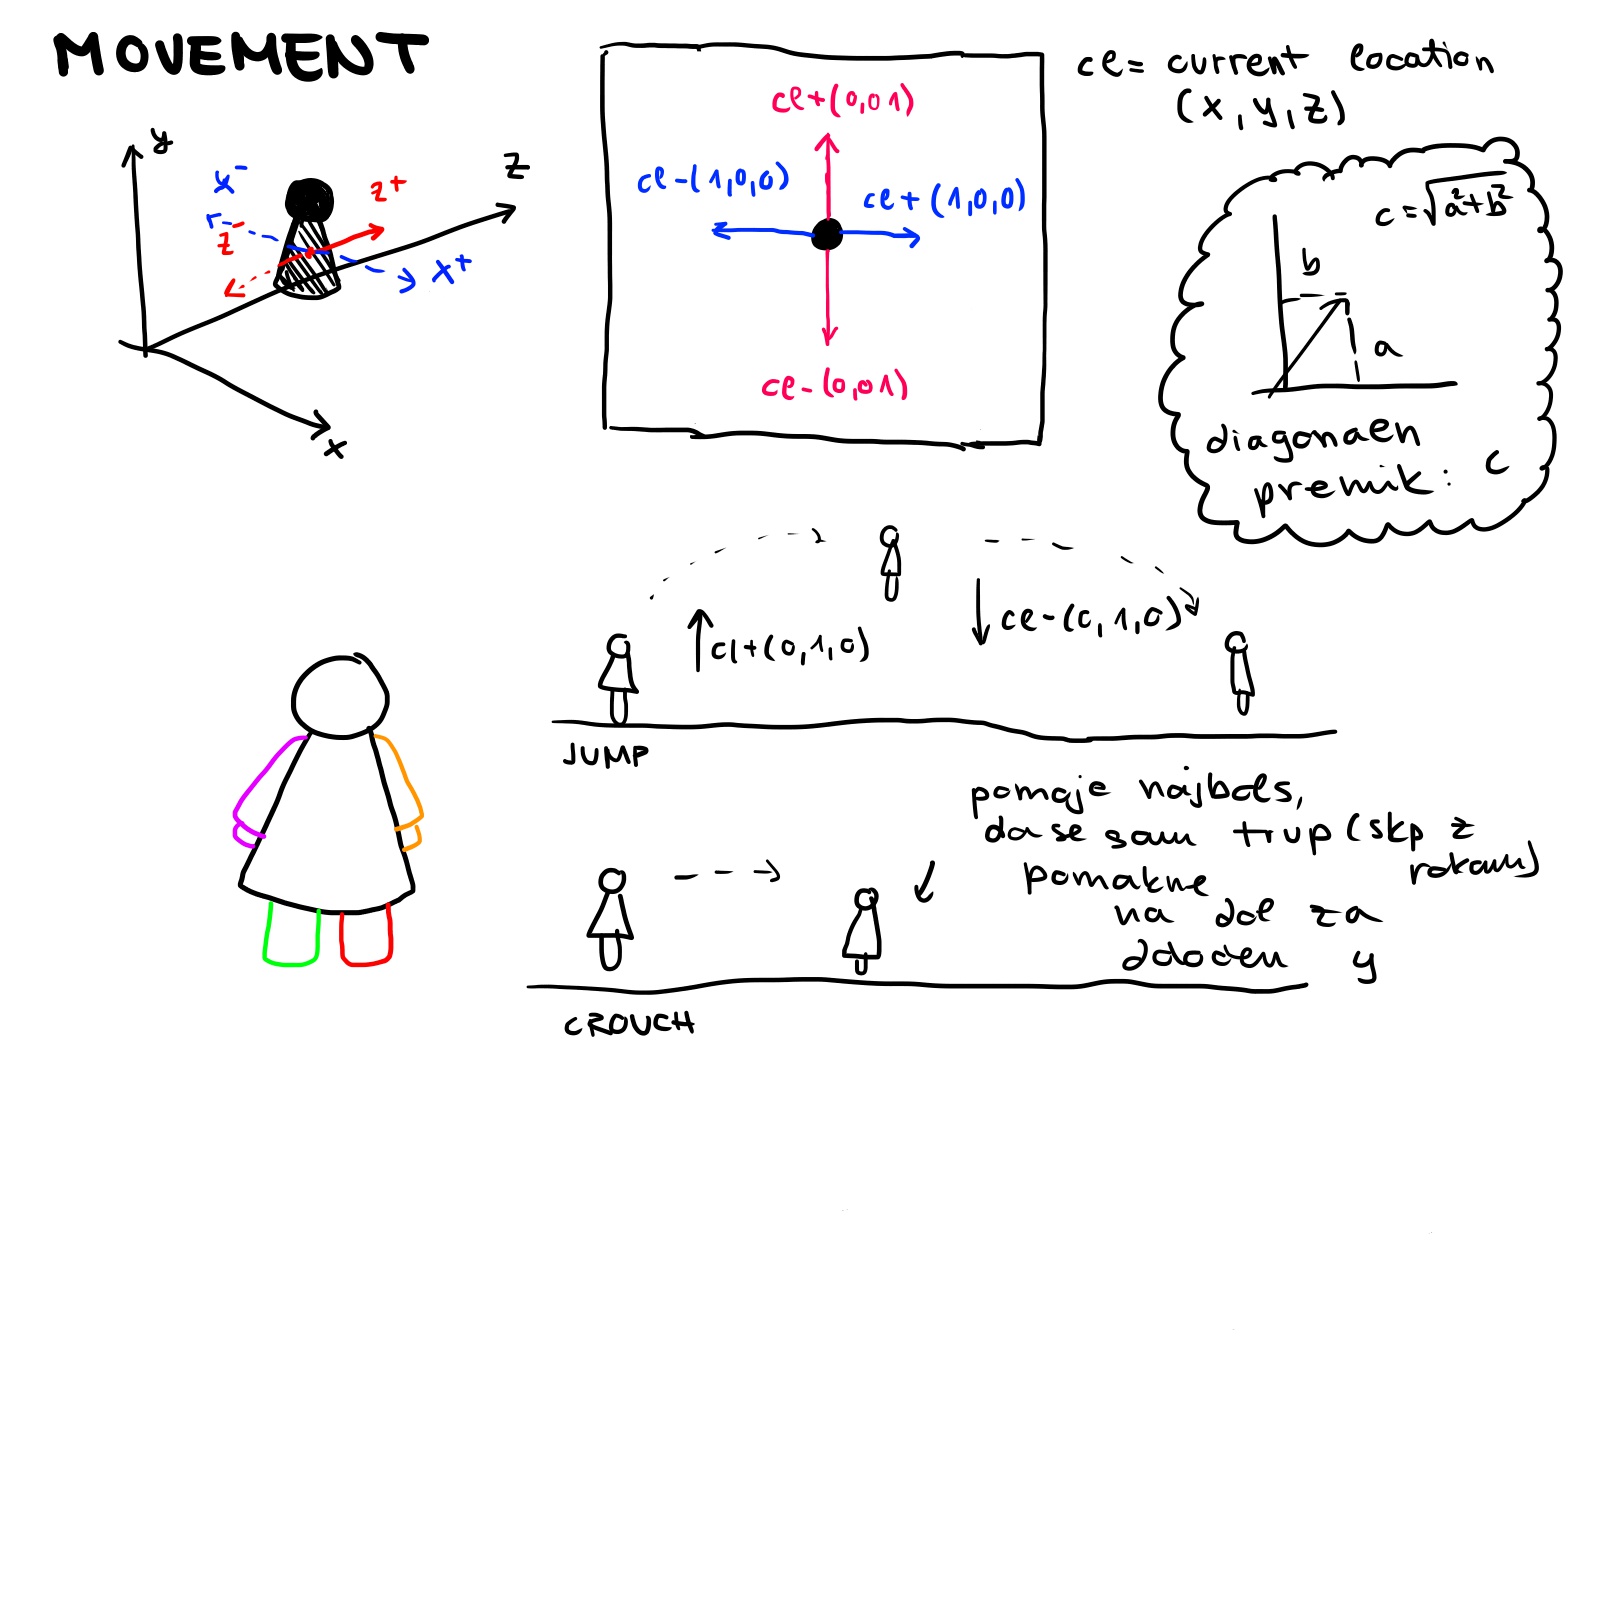 MOVEMENT
y
x-
z+
z
z-
x+
x
cl+(0,01)
cl-(1,0,0)
cl+(1,0,0)
cl-(0,01)
cl= current location
(x,y,z)
c=√a²+b²
b
a
diagonalen
premik: c
cl+(0,1,0)
cl-(0,1,0)
JUMP
pomoje najbols,
da se sam trup (skp z
rokami)
pomakne
na dol za
določen y
CROUCH